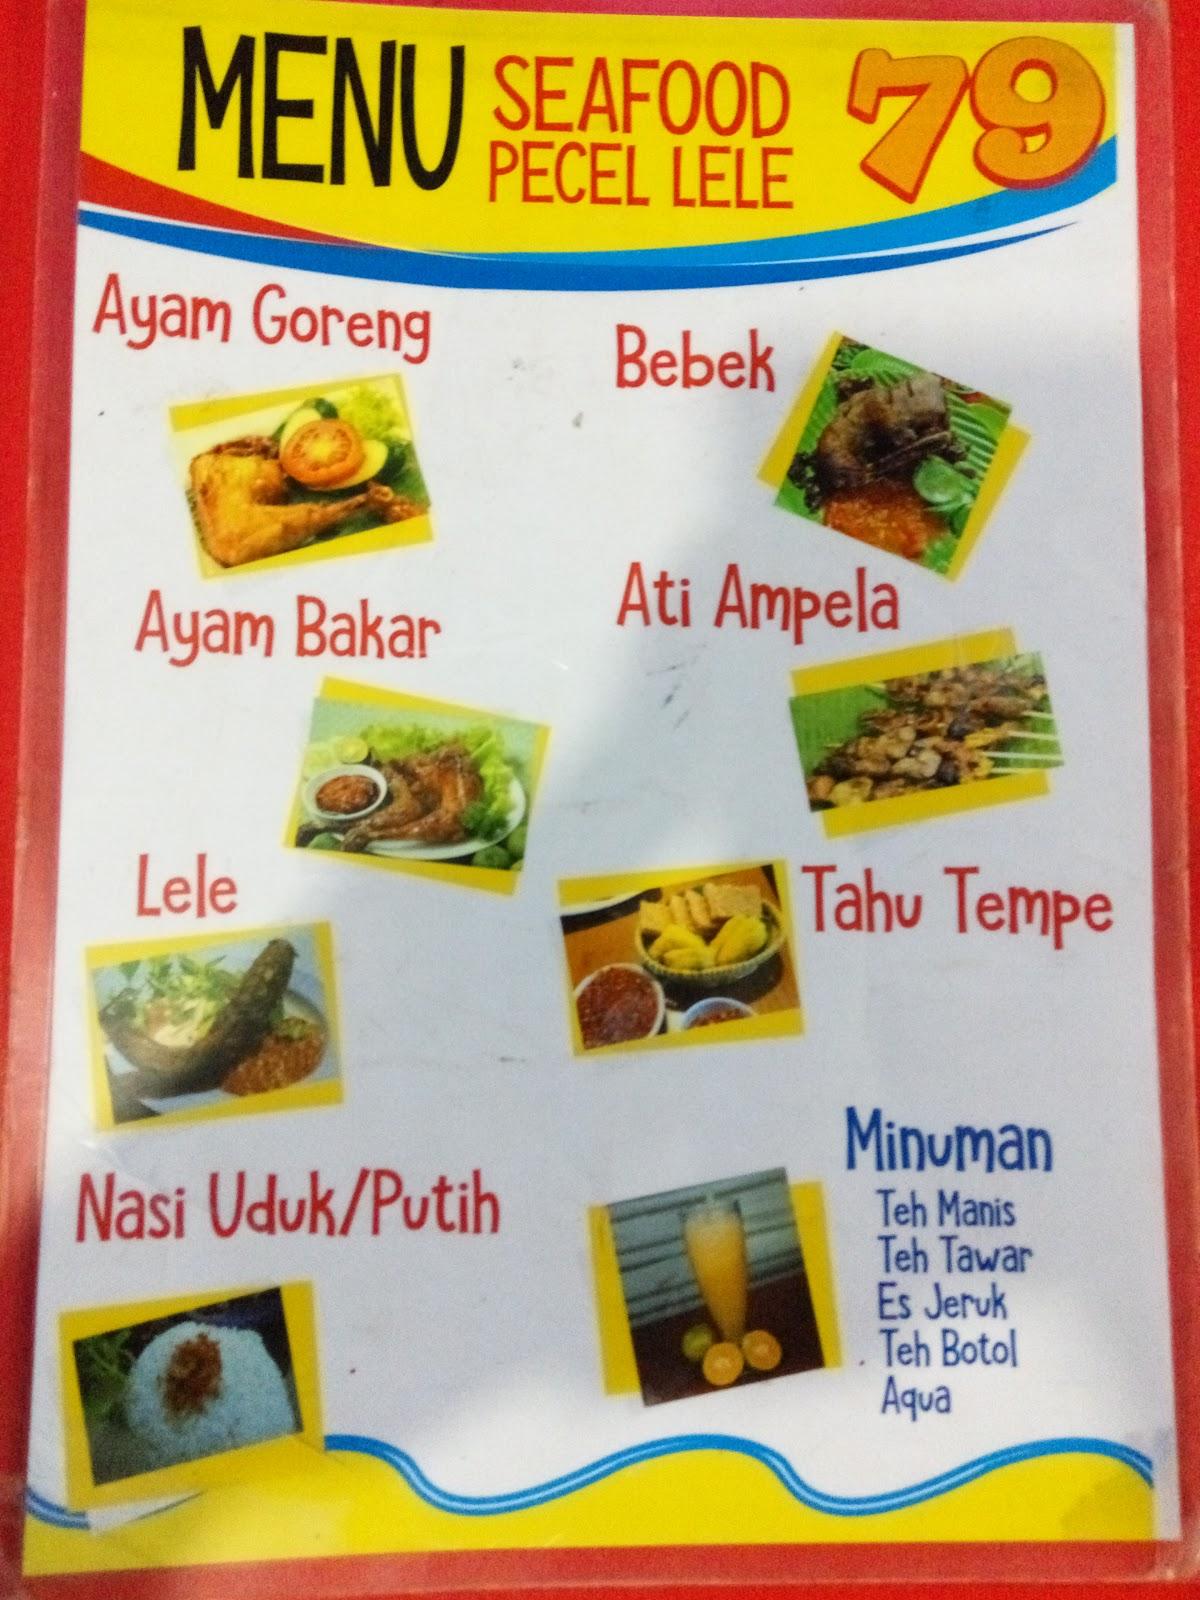 MENU
SEAFOOD
PECEL LELE
79
Ayam Goreng
Bebek
Ayam Bakar
Ati Ampela
Lele
Tahu Tempe
Nasi Uduk/Putih
Minuman
Teh Manis
Teh Tawar
Es Jeruk
Teh Botol
Aqua